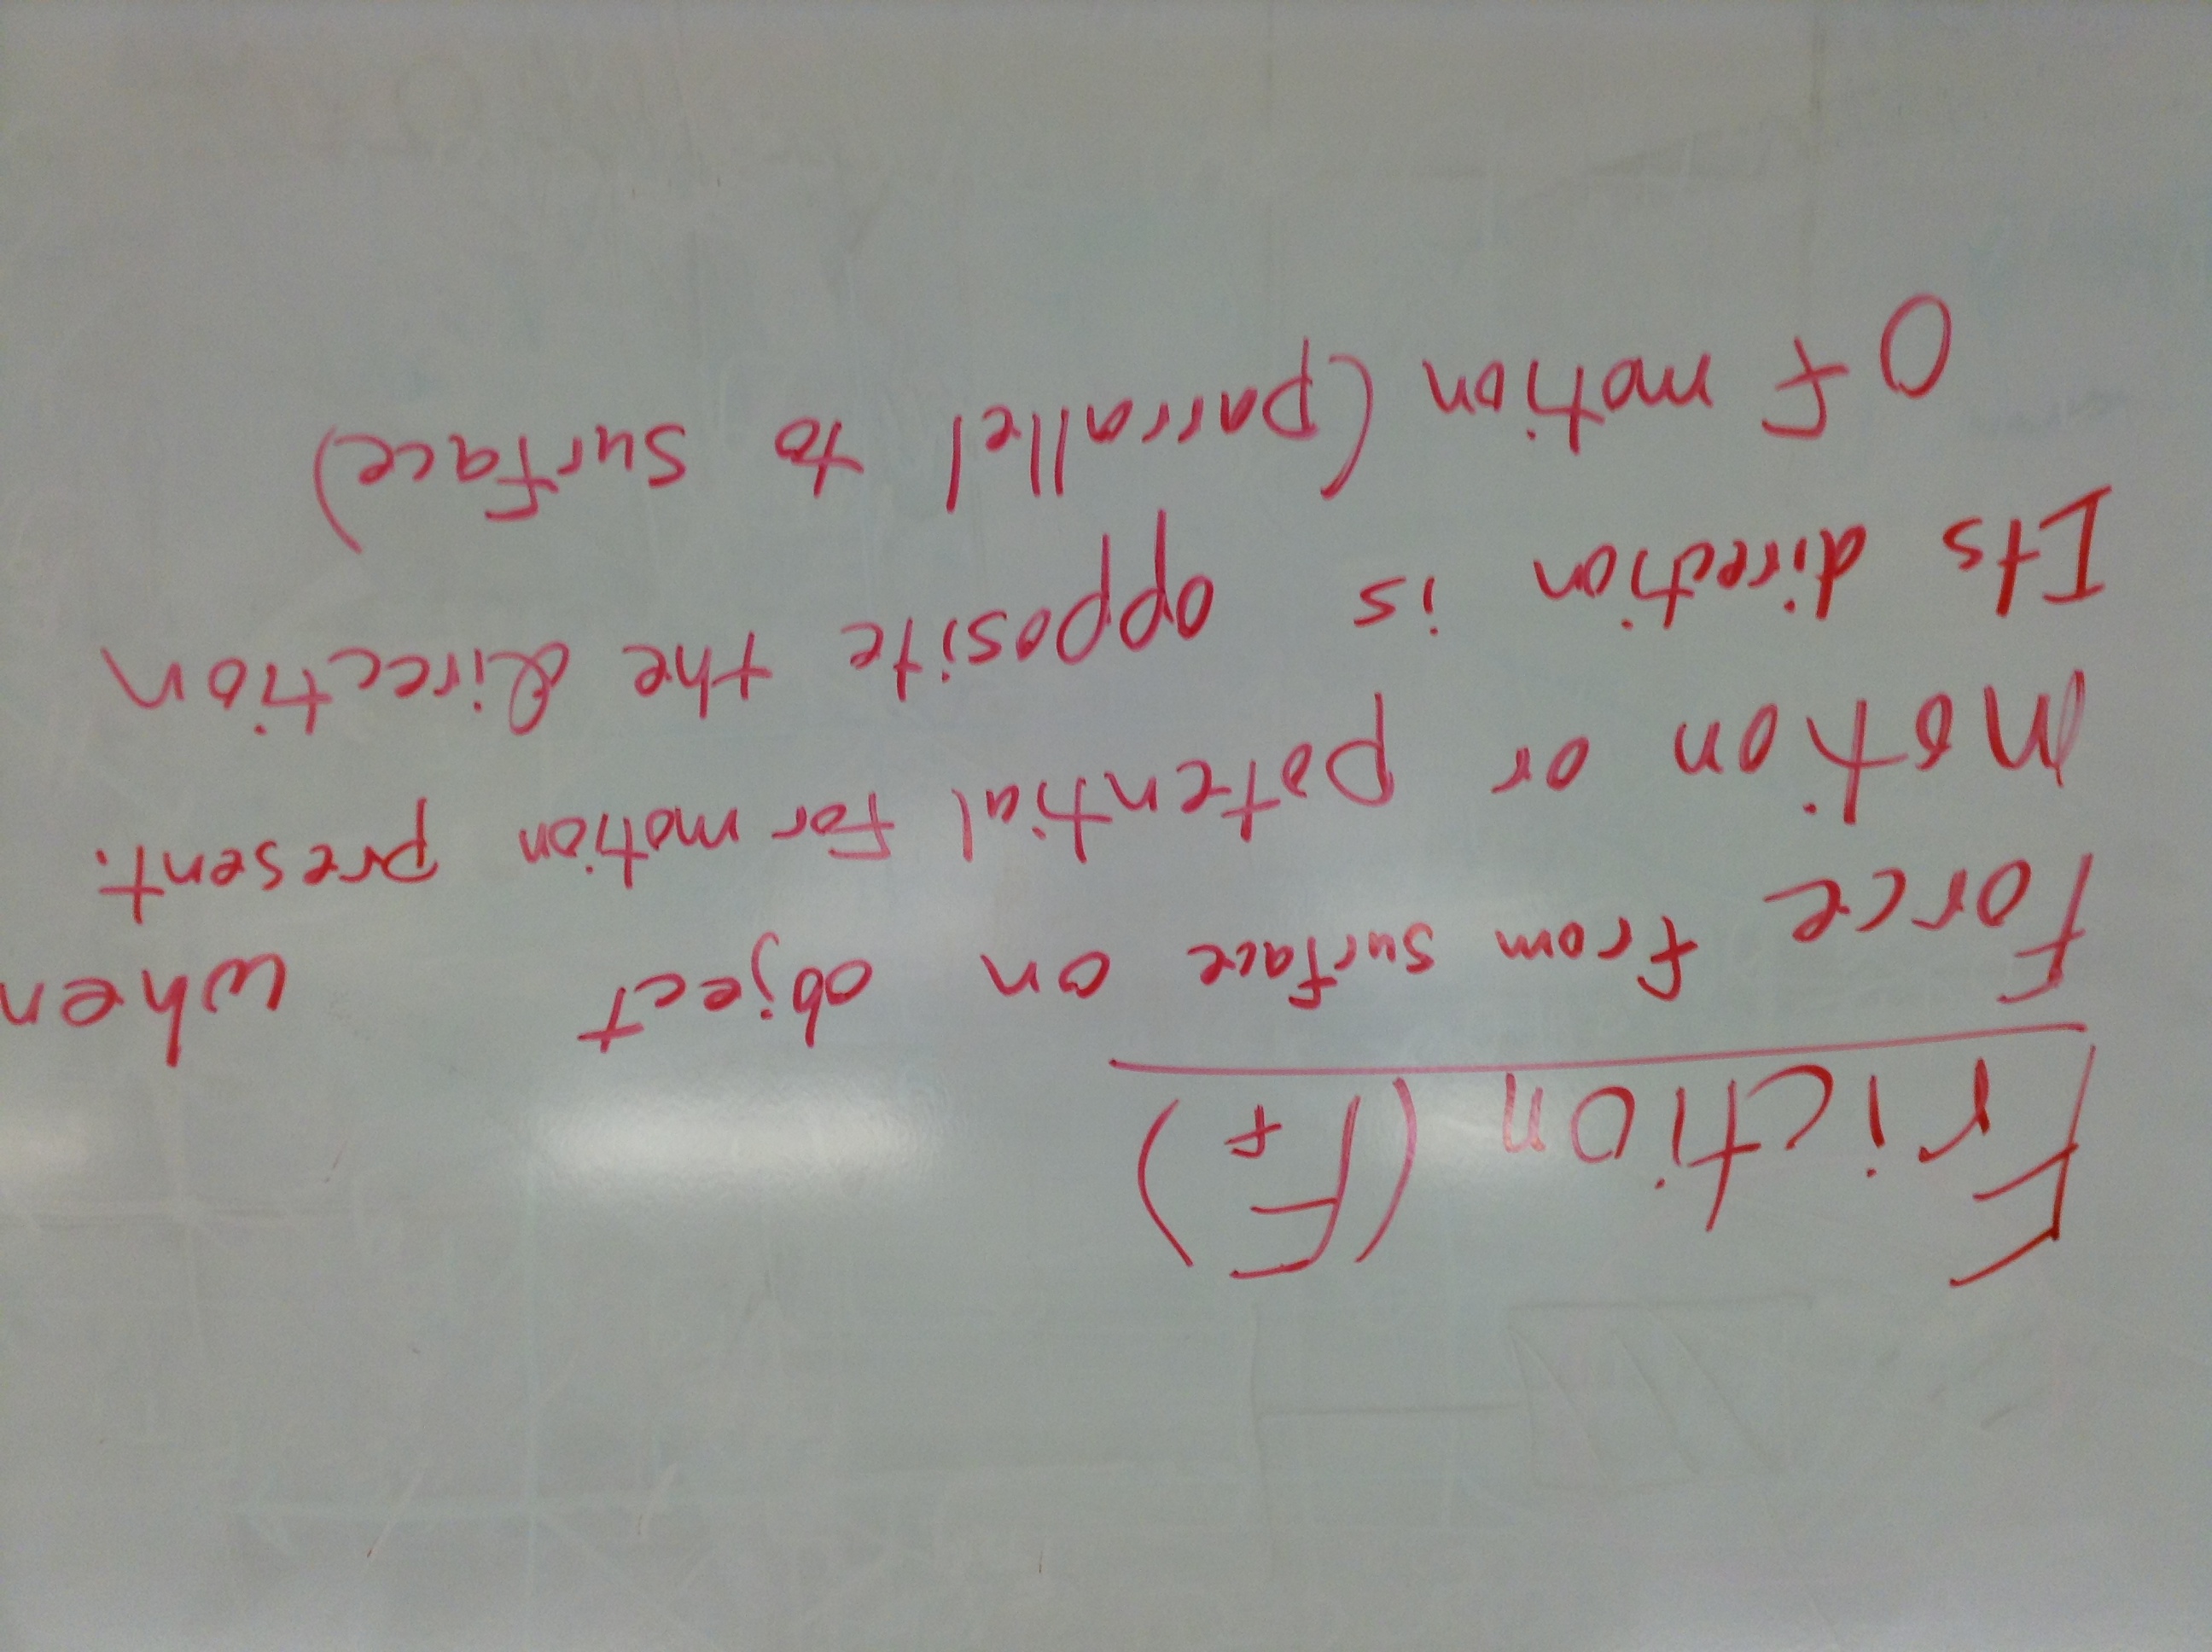 Friction (Ff)
Force from surface on object when
motion or potential for motion present.
Its direction is opposite the direction
Of motion (parrallel to surface)